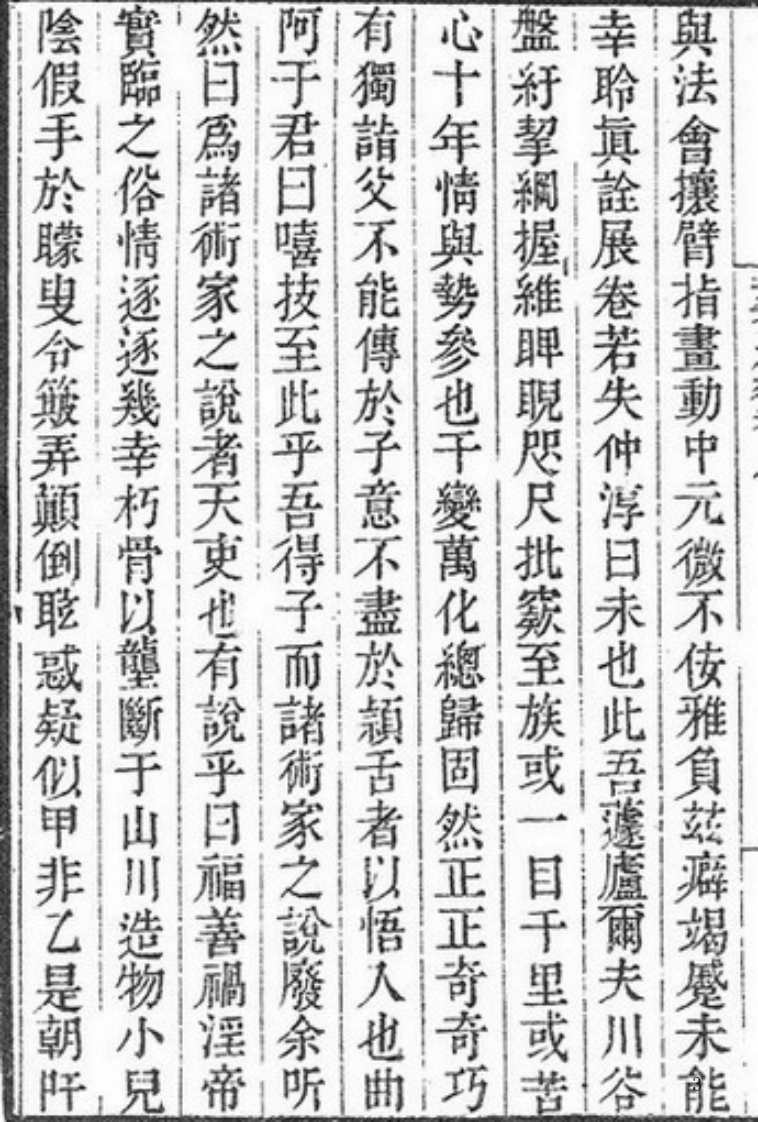 與法會攘臂指畫動中元微不佞雅負玆癖竭蹷未能
幸聆眞詮展卷若失仲淳曰未也此吾蘧廬爾夫川谷
盤紆挈綱握維睥睨咫尺批窾至族或一目千里或苦
心十年情與勢參也千變萬化總歸固然正正奇奇巧
有獨詣父不能傳於子意不盡於頴舌者以悟人也曲
阿于君曰嘻技至此乎吾得子而諸術家之說廢余听
然曰爲諸術家之說者天吏也有說乎曰福善禍淫帝
實臨之俗情逐逐幾幸朽骨以壟斷于山川造物小兒
陰假手於矇叟令簸弄顛倒眩惑疑似甲非乙是朝吁